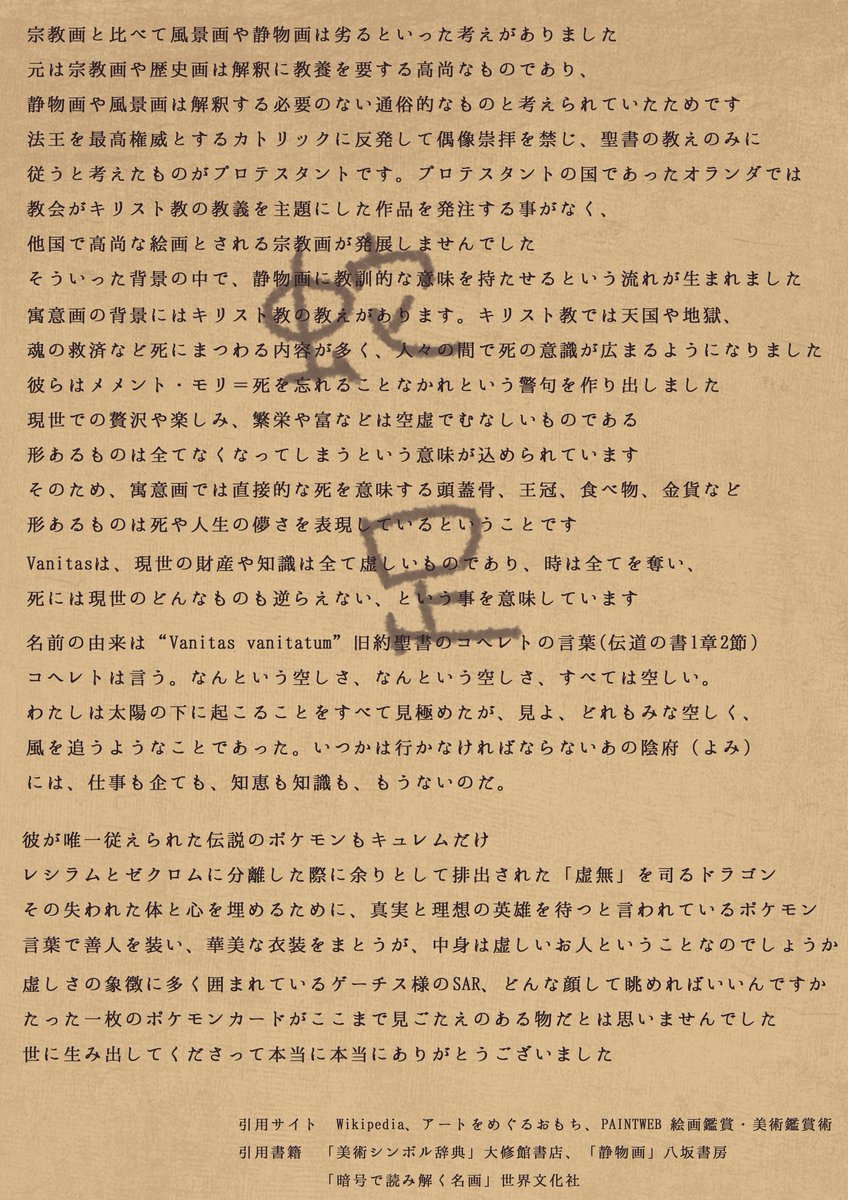 宗教画と比べて風景画や静物画は劣るといった考えがありました
元は宗教画や歴史画は解釈に教養を要する高尚なものであり、
静物画や風景画は解釈する必要のない通俗的なものと考えられていたためです
法王を最高権威とするカトリックに反発して偶像崇拝を禁じ、聖書の教えのみに
従うと考えたものがプロテスタントです。プロテスタントの国であったオランダでは
教会がキリスト教の教義を主題にした作品を発注する事がなく、
他国で高尚な絵画とされる宗教画が発展しませんでした
そういった背景の中で、静物画に教訓的な意味を持たせるという流れが生まれました
寓意画の背景にはキリスト教の教えがあります。キリスト教では天国や地獄、
魂の救済など死にまつわる内容が多く、人々の間で死の意識が広まるようになりました
彼らはメメント・モリ＝死を忘れることなかれという警句を作り出しました
現世での贅沢や楽しみ、繁栄や富などは空虚でむなしいものである
形あるものは全てなくなってしまうという意味が込められています
そのため、寓意画では直接的な死を意味する頭蓋骨、王冠、食べ物、金貨など
形あるものは死や人生の儚さを表現しているということです
Vanitasは、現世の財産や知識は全て虚しいものであり、時は全てを奪い、
死には現世のどんなものも逆らえない、という事を意味しています
名前の由来は“Vanitas vanitatum”旧約聖書のコヘレトの言葉(伝道の書1章2節)
コヘレトは言う。なんという空しさ、なんという空しさ、すべては空しい。
わたしは太陽の下に起こることをすべて見極めたが、見よ、どれもみな空しく、
風を追うようなことであった。いつかは行かなければならないあの陰府（よみ）
には、仕事も企ても、知恵も知識も、もうないのだ。
蛇足
彼が唯一従えられた伝説のポケモンもキュレムだけ
レシラムとゼクロムに分離した際に余りとして排出された「虚無」を司るドラゴン
その失われた体と心を埋めるために、真実と理想の英雄を待つと言われているポケモン
言葉で善人を装い、華美な衣装をまとうが、中身は虚しいお人ということなのでしょうか
虚しさの象徴に多く囲まれているゲーチス様のSAR、どんな顔して眺めればいいんですか
たった一枚のポケモンカードがここまで見ごたえのある物だとは思いませんでした
世に生み出してくださって本当に本当にありがとうございました
引用サイト　Wikipedia、アートをめぐるおもち、PAINTWEB 絵画鑑賞・美術鑑賞術
引用書籍　「美術シンボル辞典」大修館書店、「静物画」八坂書房
「暗号で読み解く名画」世界文化社